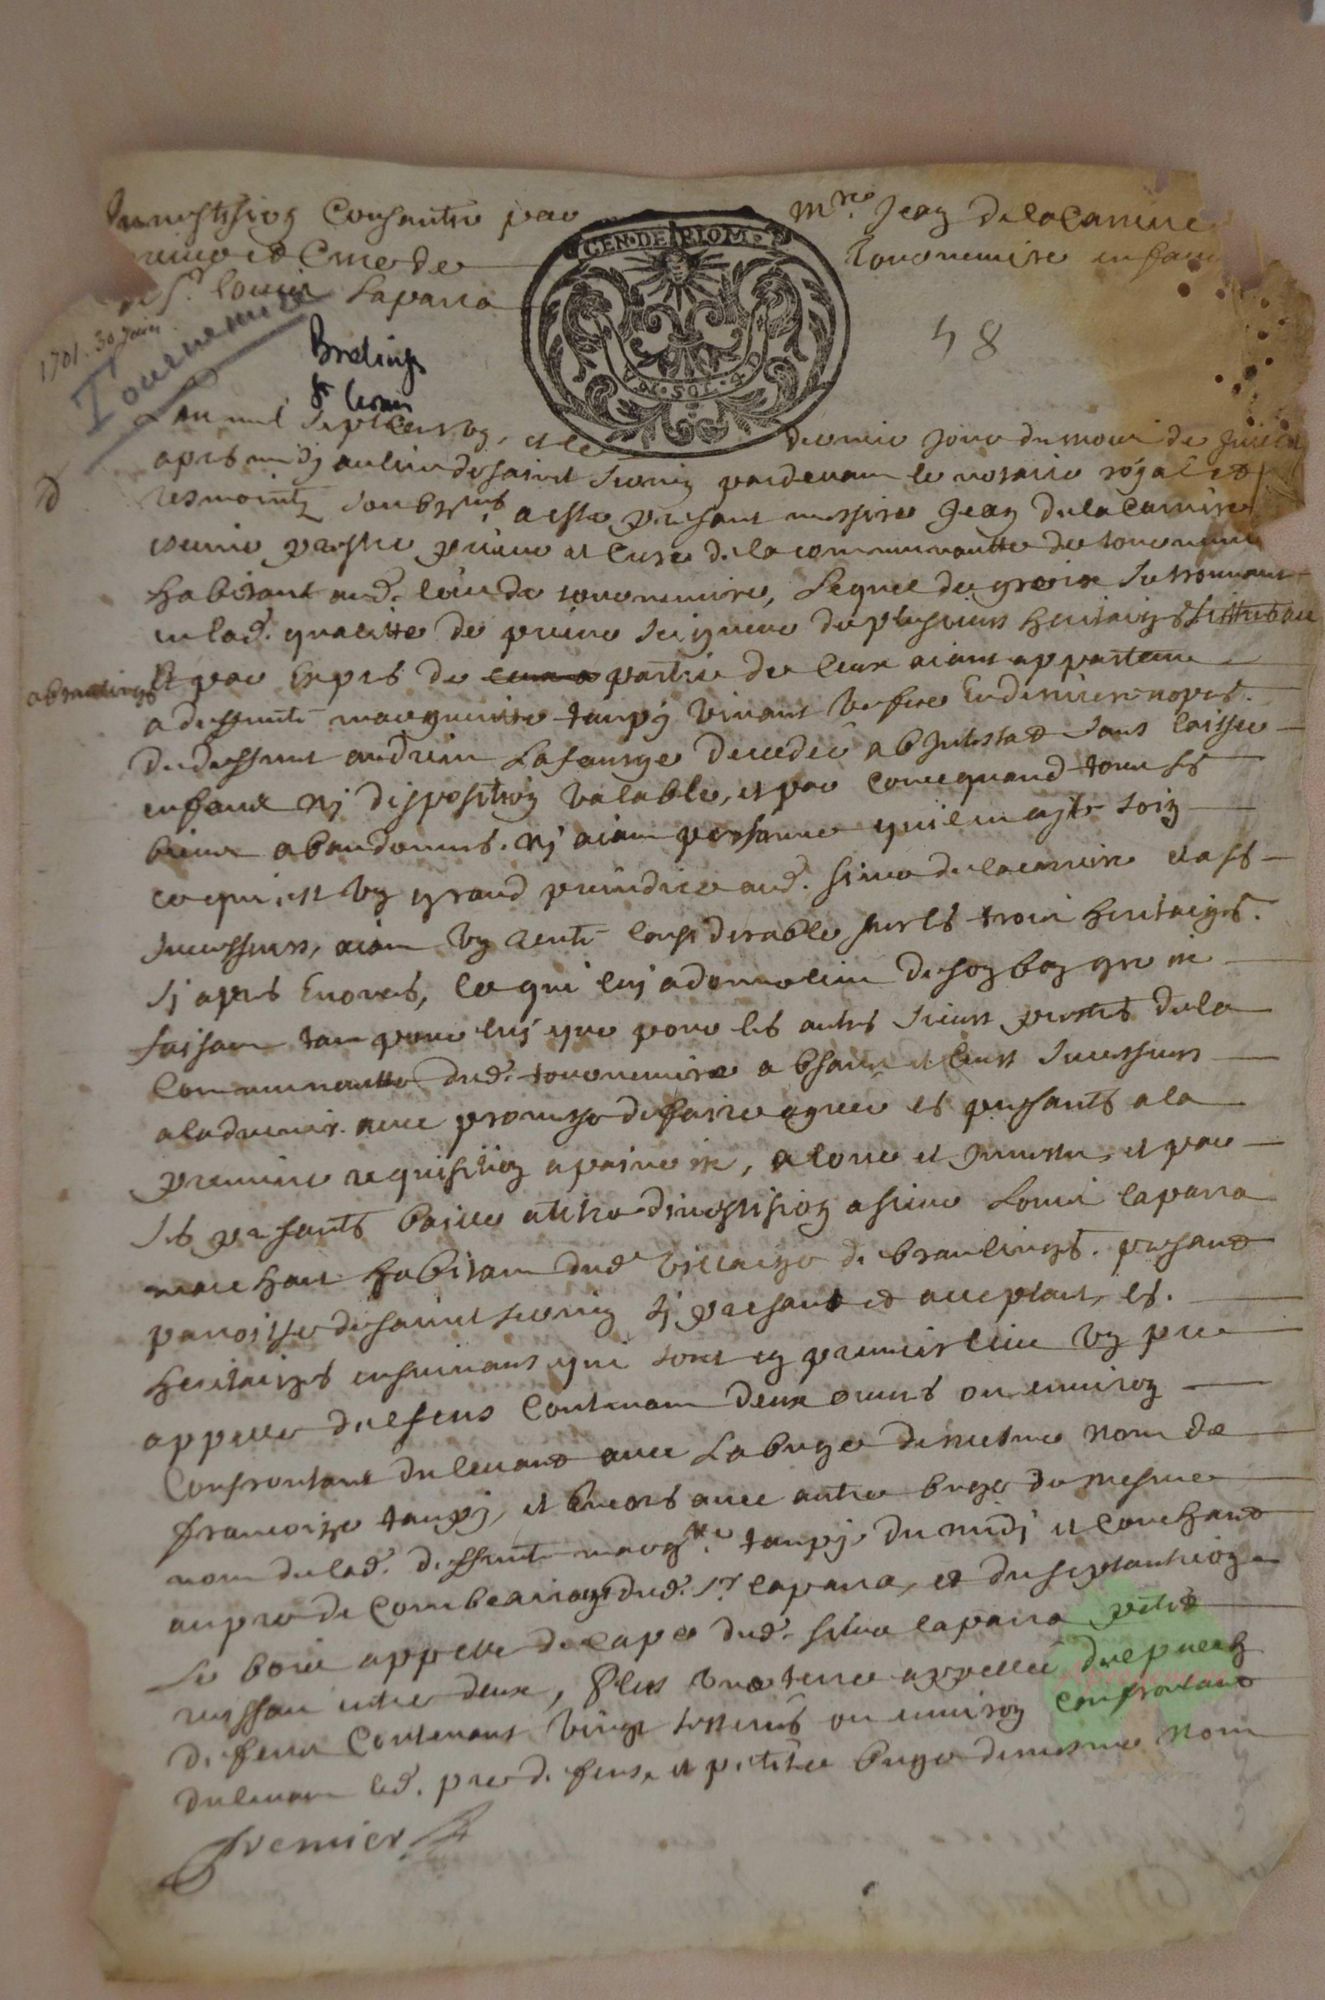 Investision Consantie par Mre Jean de la Carriere
prieur et Cure de Tournemire en faveur
de Sr. Louis Laparra
GEN·DE·RIOM
A·SOL·4·D
48
1701. 30 juin
Tournemire
Brelinges
St Cernin
L'an mil sept cens un, et le dernier jour du mois de
apres midy au lieu de saint Sernin pardevant le notaire royal et
tesmoints soubsnes, a este presant messire Jean de la Carriere
prestre prieur et Cure de la communautte de tournemire
habitant aud. lieu de tournemire, Lequel de gre se trouvant
en lad. qualitte de prieur seigneur de plusieurs heritaiges
Et par Expres de partie de ceux aiant appartenu
a braulinges
a deffunte marguerite taupy vivant vefve En dernieres nopces
de deffunt andrieu Lafarge decedee ab Intestad sans laisser
enfans ny disposition valable, et par consequand tous ses
biens abandonnes. ny aiant personne qui en ayt soin
ce qui est un grand preiudice aud. sieur de lacarriere et a ses
successeurs, aiant un rente considerable sur les trois heritaiges
sy apres Enonces, ce qui luy a donne lieu de son bon gre
faisant tant pour luy que pour les autres sieurs prestres de la
Communautte dud. tournemire absans et leurs successeurs
a ladvenir avec promesse de faire agreer ces presants a la
premiere requisition a paine, a loue et Investu, et par
ses presants baille a titre d'investision a sieur Louis laparra
marchant habitant dud village de braulinges. presant
parroisse de saint Sernin sy presant et acceptant, les
heritaiges ensuivans qui sont en premier lieu un pre
appelle del fens Contenant deux œuvres ou environ
Confrontant du levant avec La buge de mesme nom de
francoise taupy, et Encores avec autre buge du mesme
nom de lad. deffunte margte taupy du midy et couchant
au pre de Combe dud. Sr laparra, et du septantrion
le bois appelle de Lape dud. sieur laparra petit
ruisseau entre deux, Plus une terre appellee del puech
de fens Contenant vingt sesteres ou environ Confrontant
du levant led. pre de fens, et petite buge de mesme nom
Premier